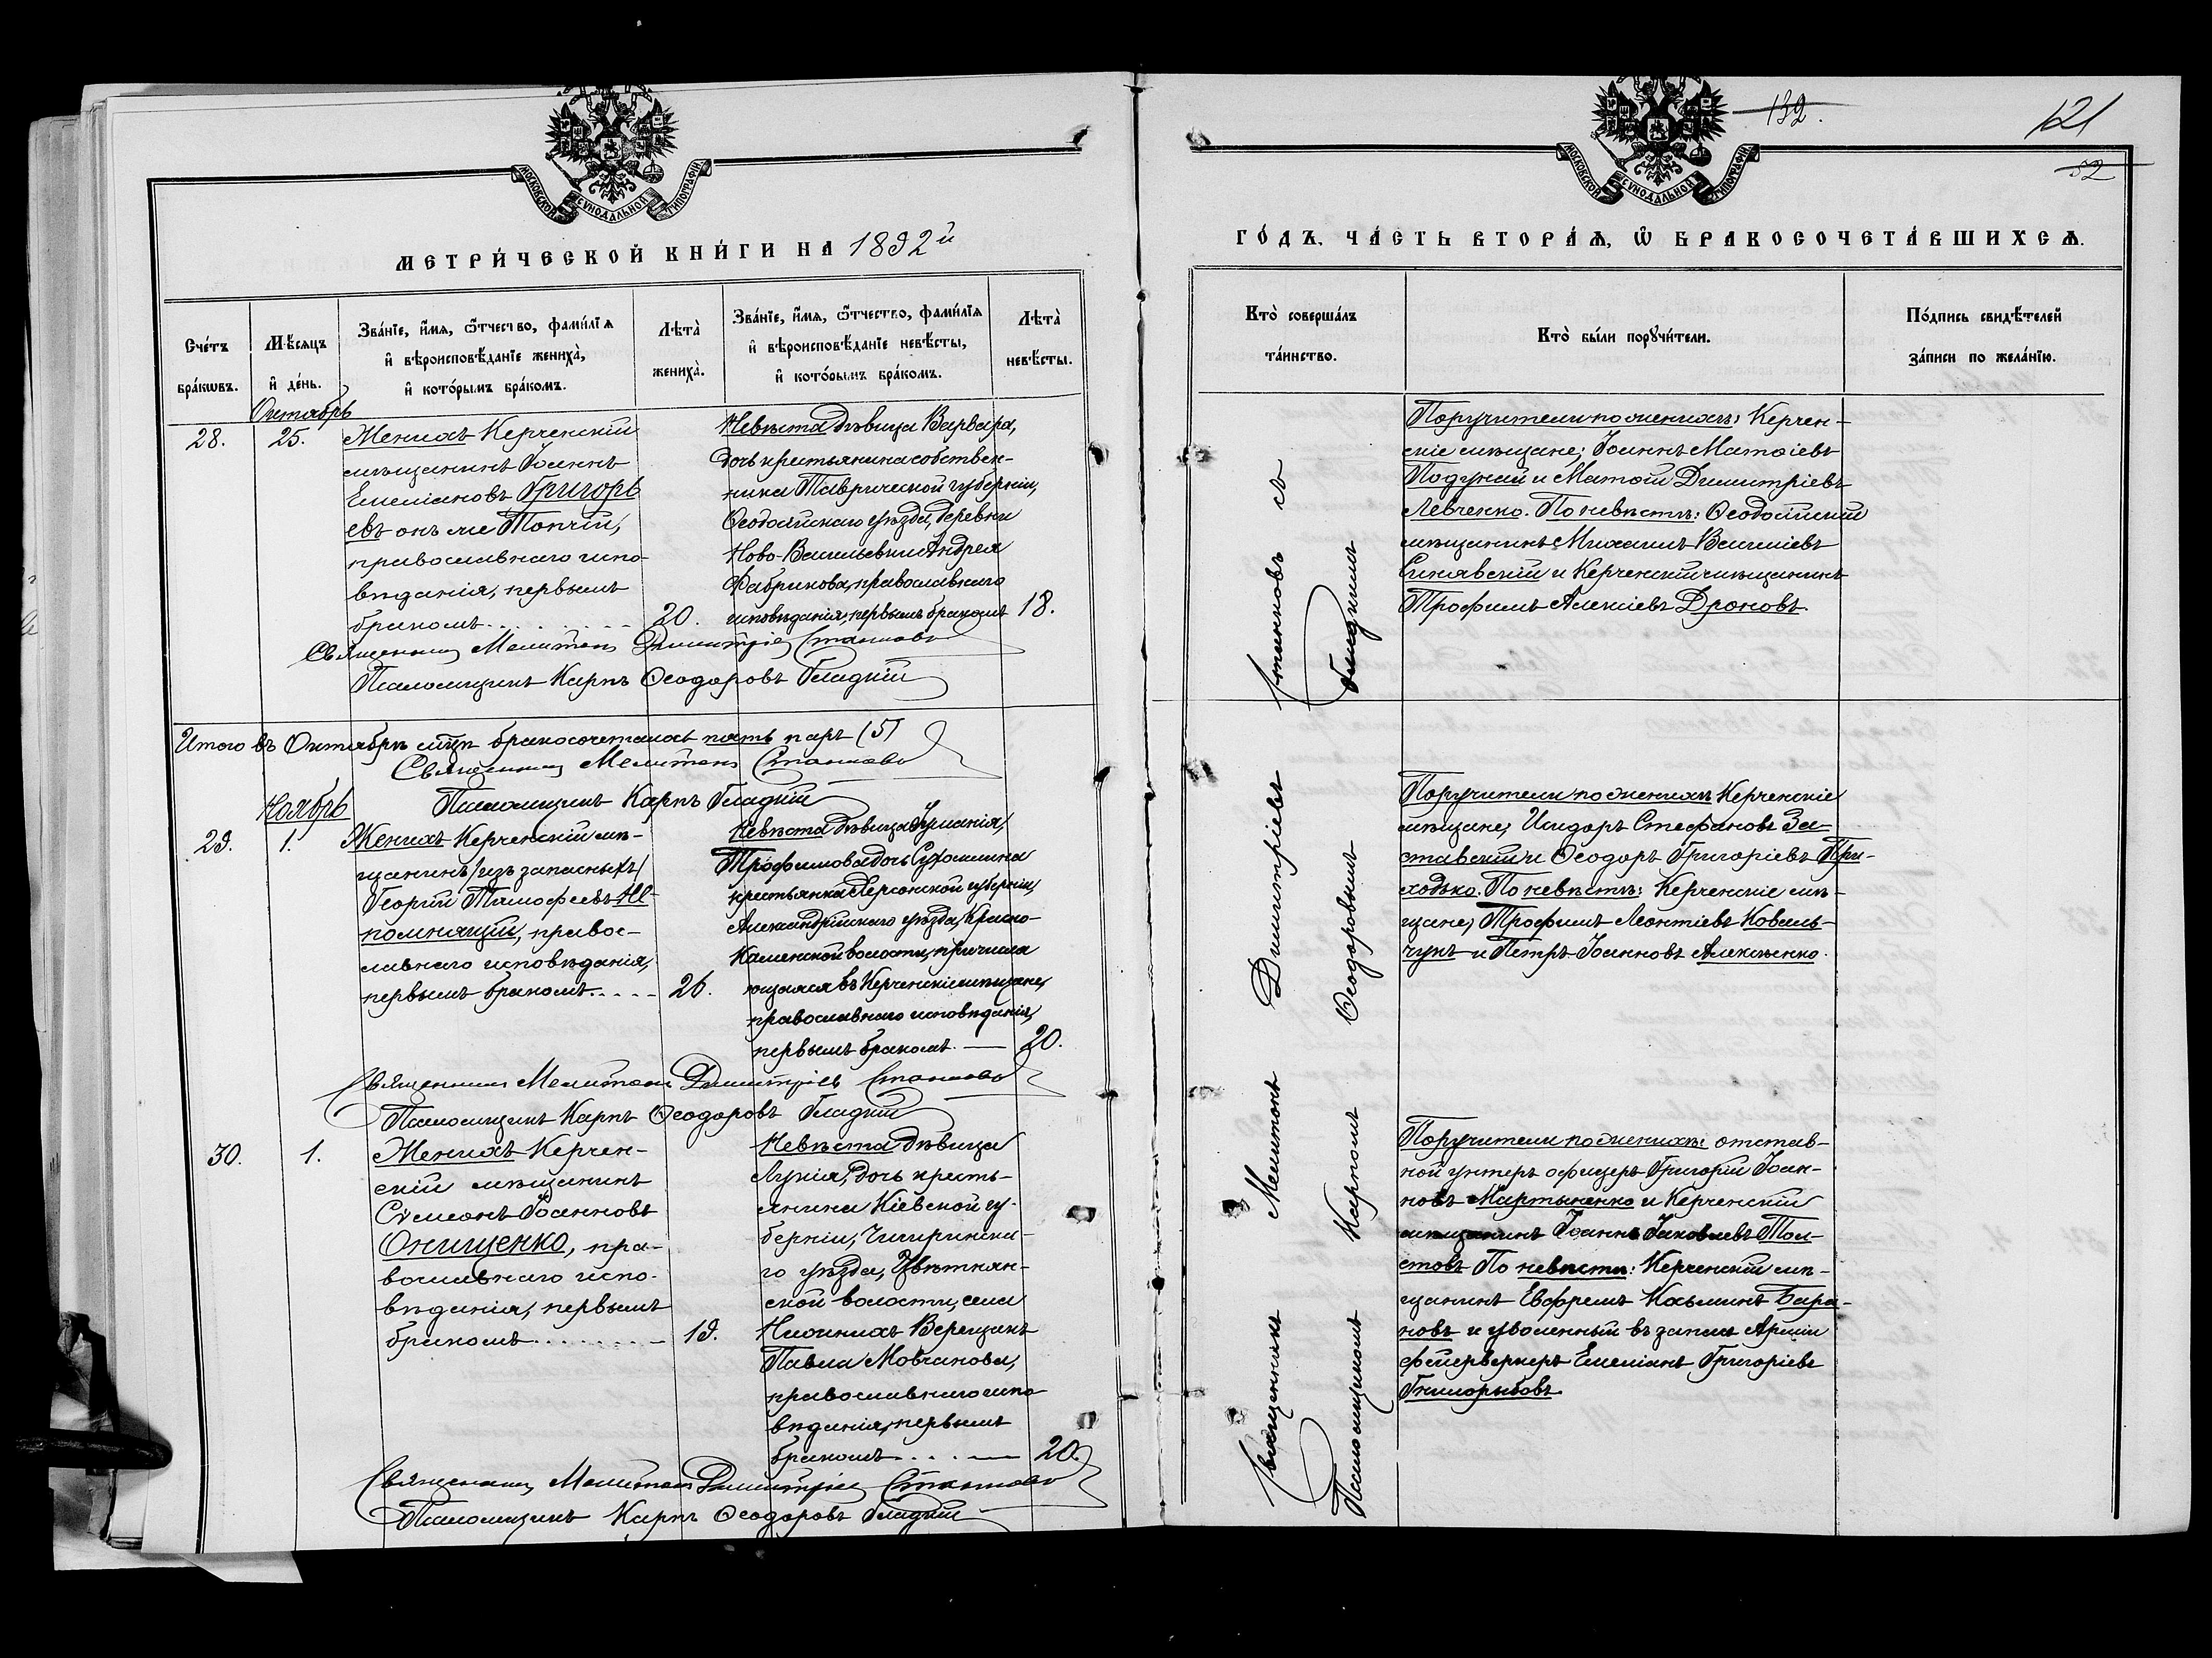 МОСКОВСКОЙ СУНОДАЛЬНОЙ ТИПОГРАФІИ
МЕТРИ́ЧЕСКОЙ КНИ́ГИ НА 1892й
Сче́тъ бра́кωвъ.
М҆ѣсяцъ и҆ де́нь.
Зва́нїе, и҆́мя, ѻ҆́тчество, фами́лїя
и҆ вѣроисповѣ́данїе жениха̀,
и҆ кото́рымъ бра́комъ.
Лѣта̀ жениха̀.
Зва́нїе, и҆́мя, ѻ҆́тчество, фами́лїя
и҆ вѣроисповѣ́данїе невѣ́сты,
и҆ кото́рымъ бра́комъ.
Лѣта̀ невѣ́сты.
Октябрь
28.
25.
Женихъ Керченскій
мѣщанинъ Іоаннъ
Емеліановъ Григорь
евъ онъ же Топчій,
православнаго испо-
вѣданія, первымъ
бракомъ
20.
Невѣста дѣвица Варвара,
дочь крестьянина собствен-
ника Таврической губерніи,
Ѳеодосійскаго уѣзда, деревни
Ново-Васильевки Андрея
Фабрикова, православнаго
исповѣданія, первымъ бракомъ
18.
Священникъ Мелитонъ Димитріевъ Станковъ
Псаломщикъ Карпъ Ѳеодоровъ Гладкій
Итого въ Октябрѣ мѣсяцѣ бракосочеталось пять паръ (5)
Священникъ Мелитонъ Станковъ
Псаломщикъ Карпъ Гладкій
Ноябрь
29.
1.
Женихъ Керченскій мѣ-
щанинъ (изъ запасныхъ)
Георгій Тимофеевъ Не-
помнящій, правос-
лавнаго исповѣданія,
первымъ бракомъ
26.
Невѣста дѣвица Іуліанія,
Трофимова дочь Сухомлина
крестьянка Херсонской губерніи,
Александрійскаго уѣзда, Красно-
Каменской волости, причисля
ющаяся въ Керченскіе мѣщане,
православнаго исповѣданія,
первымъ бракомъ
20.
Священникъ Мелитонъ Димитріевъ Станковъ
Псаломщикъ Карпъ Ѳеодоровъ Гладкій
30.
1.
Женихъ Керчен-
скій мѣщанинъ
Сѵмеонъ Іоанновъ
Онищенко, пра-
вославнаго испо-
вѣданія, первымъ
бракомъ
19.
Невѣста дѣвица
Лукія, дочь кресть-
янина Кіевской гу-
берніи, Чигиринска-
го уѣзда, Цвѣтнян-
ской волости, села
Нижнихъ Верещакъ
Павла Мовчанова,
православнаго испо
вѣданія, первымъ
бракомъ
20.
Священникъ Мелитонъ Димитріевъ Станковъ
Псаломщикъ Карпъ Ѳеодоровъ Гладкій
132.
121
52
МОСКОВСКОЙ СУНОДАЛЬНОЙ ТИПОГРАФІИ
ГО́ДЪ, ЧА́СТЬ ВТОРА́Я, Ѽ БРАКОСОЧЕТА́ВШИХСЯ.
Кто̀ соверша́лъ та́инство.
Кто̀ бы́ли порꙋчи́тели.
По́дпись свидѣ́телей за́писи по жела́нїю.
Священникъ Мелитонъ Димитріевъ Станковъ съ
Псаломщикомъ Карпомъ Ѳеодоровымъ Гладкимъ
Поручители по женихѣ: Керчен-
скіе мѣщане; Іоаннъ Матѳіевъ
Подунай и Матѳій Димитріевъ
Левченко. По невѣстѣ: Ѳеодосійскій
мѣщанинъ Михаилъ Василіевъ
Синявскій и Керченскій мѣщанинъ
Трофимъ Алексіевъ Дроновъ.
Поручители по женихѣ Керченскіе
мѣщане, Исидоръ Стефановъ За-
ставскій и Ѳеодоръ Григоріевъ При-
ходько. По невѣстѣ: Керченскіе мѣ-
щане, Трофимъ Леонтіевъ Коваль-
чукъ и Петръ Іоанновъ Алексѣенко.
Поручители по женихѣ: отстав-
ной унтеръ офицеръ Григорій Іоан-
новъ Мартыненко и Керченскій
мѣщанинъ Іоаннъ Іаковлевъ Тол-
стовъ По невѣстѣ: Керченскій мѣ-
щанинъ Евфремъ Козьминъ Бара-
новъ и уволенный въ запасъ Арміи
фейерверкеръ Емеліанъ Григоріевъ
Гнилорыбовъ.